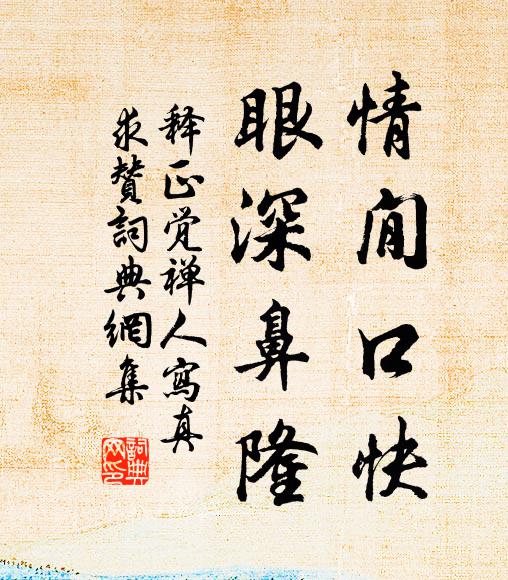 情閒口快
眼深鼻隆
释正觉禅人寫真
求贊詞典網集
詞典网印